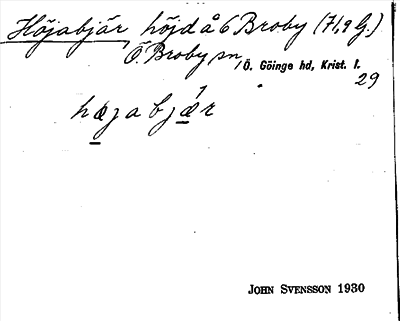 Höjabjär höjd å 6 Broby (71,9 G.)
Ö. Broby sn, Ö. Göinge hd, Krist. l.
29
hæjabjær
JOHN SVENSSON 1930